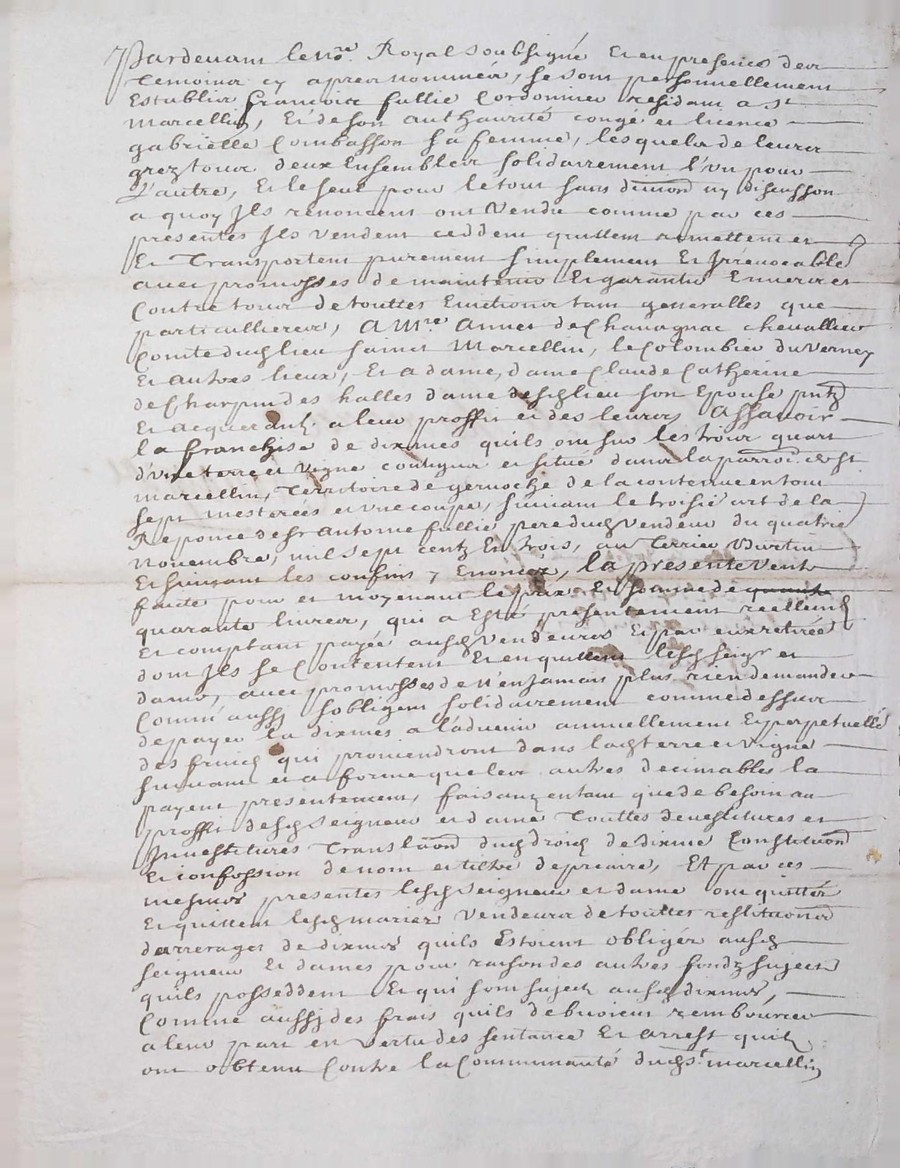 Pardevant le no.re Royal soubsigné Et en presence des
Temoins cy apres nommés, se sont personnellement
Establis françois fullie Cordonnier residant a st
marcellin, Et de son authaurité congé et licence
gabrielle Combasson sa femme, lesquels de leurs
grez tous deux Ensembles solidairement l'un pour
L'autre, Et le seul pour le tout sans division ny discusson
a quoy Ils renoncent ont Vendu comme par ces
presentes Ils vendent ceddent quittent remettent et
Et Transportent purement simplement Et Irrevocable
avec promesses de maintenir Et garantir Envers et
Contre tous de touttes Evictions tant generalles que
particullieres, A M.re Annet de Chavagnac chevallier
Comte dud lieu saint Marcellin, le Colombier du verney
Et autres lieux, Et a dame, dame Claude Catherine
de Charpin des halles dame desd lieu son Epouse pntz
Et acquerantz a leur proffit et des leurs Assavoir
la franchise de dixmes quils ont sur les trois quart
d'une terre et vigne contigus et situé dans la parroi. de st
marcellin, Territoire de gernoche de la contenue en tout
sept mesterées et une coupe, suivant le troisie art de la
Reponce de sr Antoine fullie pere dud vendeur du quatrie
novembre, mil sept centz En trois, au Terrier Durtin
Et suivant les confins y Enoncés, la presente Vente
faicte pour et moyenant le prix Et somme de quarante
quarante livres, qui a Esté presentement reellem
Et comptant payée ausd vendeurs Et par eux retirée
dont Ils se Contentent Et en quittent lesd seigr et
dame, avec promesses de n'en Jamais plus rien demander
Comm'aussy sobligent solidairement comme dessus
de payer la dixmes a l'advenir annuellement Et perpetuelle
des fruicz qui proviendront dans lad terre et vigne
suivant et a forme que les autres decimables la
payent presentement, faisanz en tant que de besoin au
proffit desd seigneur et dame Touttes devestitures et
Investitures Translaon dud droict de dixme Constitution
Et confession de nom et tiltre de precaire, Et par ces
mesmes presentes lesd seigneur et dame ont quitté
Et quittent lesd mariez Vendeurs de touttes restitutions
darrerages de dixmes quils Estoient obligés ausd
seigneur Et dames pour raison des autres fondz sujects
quils posseddent Et qui sont sujects ausd dixmes,
Comme aussy des frais quils debvoient rembourcer
a leur part en vertu des sentance Et arrest quils
ont obtenu Contre la Communauté dud st marcellin